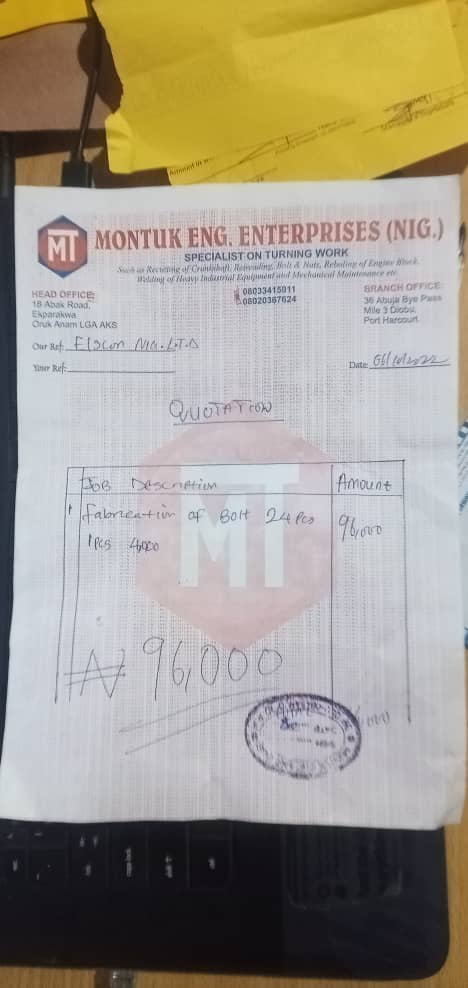 MT MONTUK ENG. ENTERPRISES (NIG.)
SPECIALIST ON TURNING WORK
Such as Recuting of Crankshaft, Rethreading, Bolt & Nuts, Reboling of Engine Block,
Welding of Heavy Industrial Equipment and Mechanical Maintenance etc.
HEAD OFFICE:
18 Abak Road,
Ekparakwa
Oruk Anam LGA AKS
08033415911
08020367624
BRANCH OFFICE:
36 Abuja Bye Pass
Mile 3 Diobu,
Port Harcourt
Our Ref: Elscon Nig. L.T.D
Date:
Your Ref:
QUOTATION
Job Description Amount
1 Fabrication of Bolt 24 Pcs 96,000
1 Pcs 4,000
MT
₦ 96,000